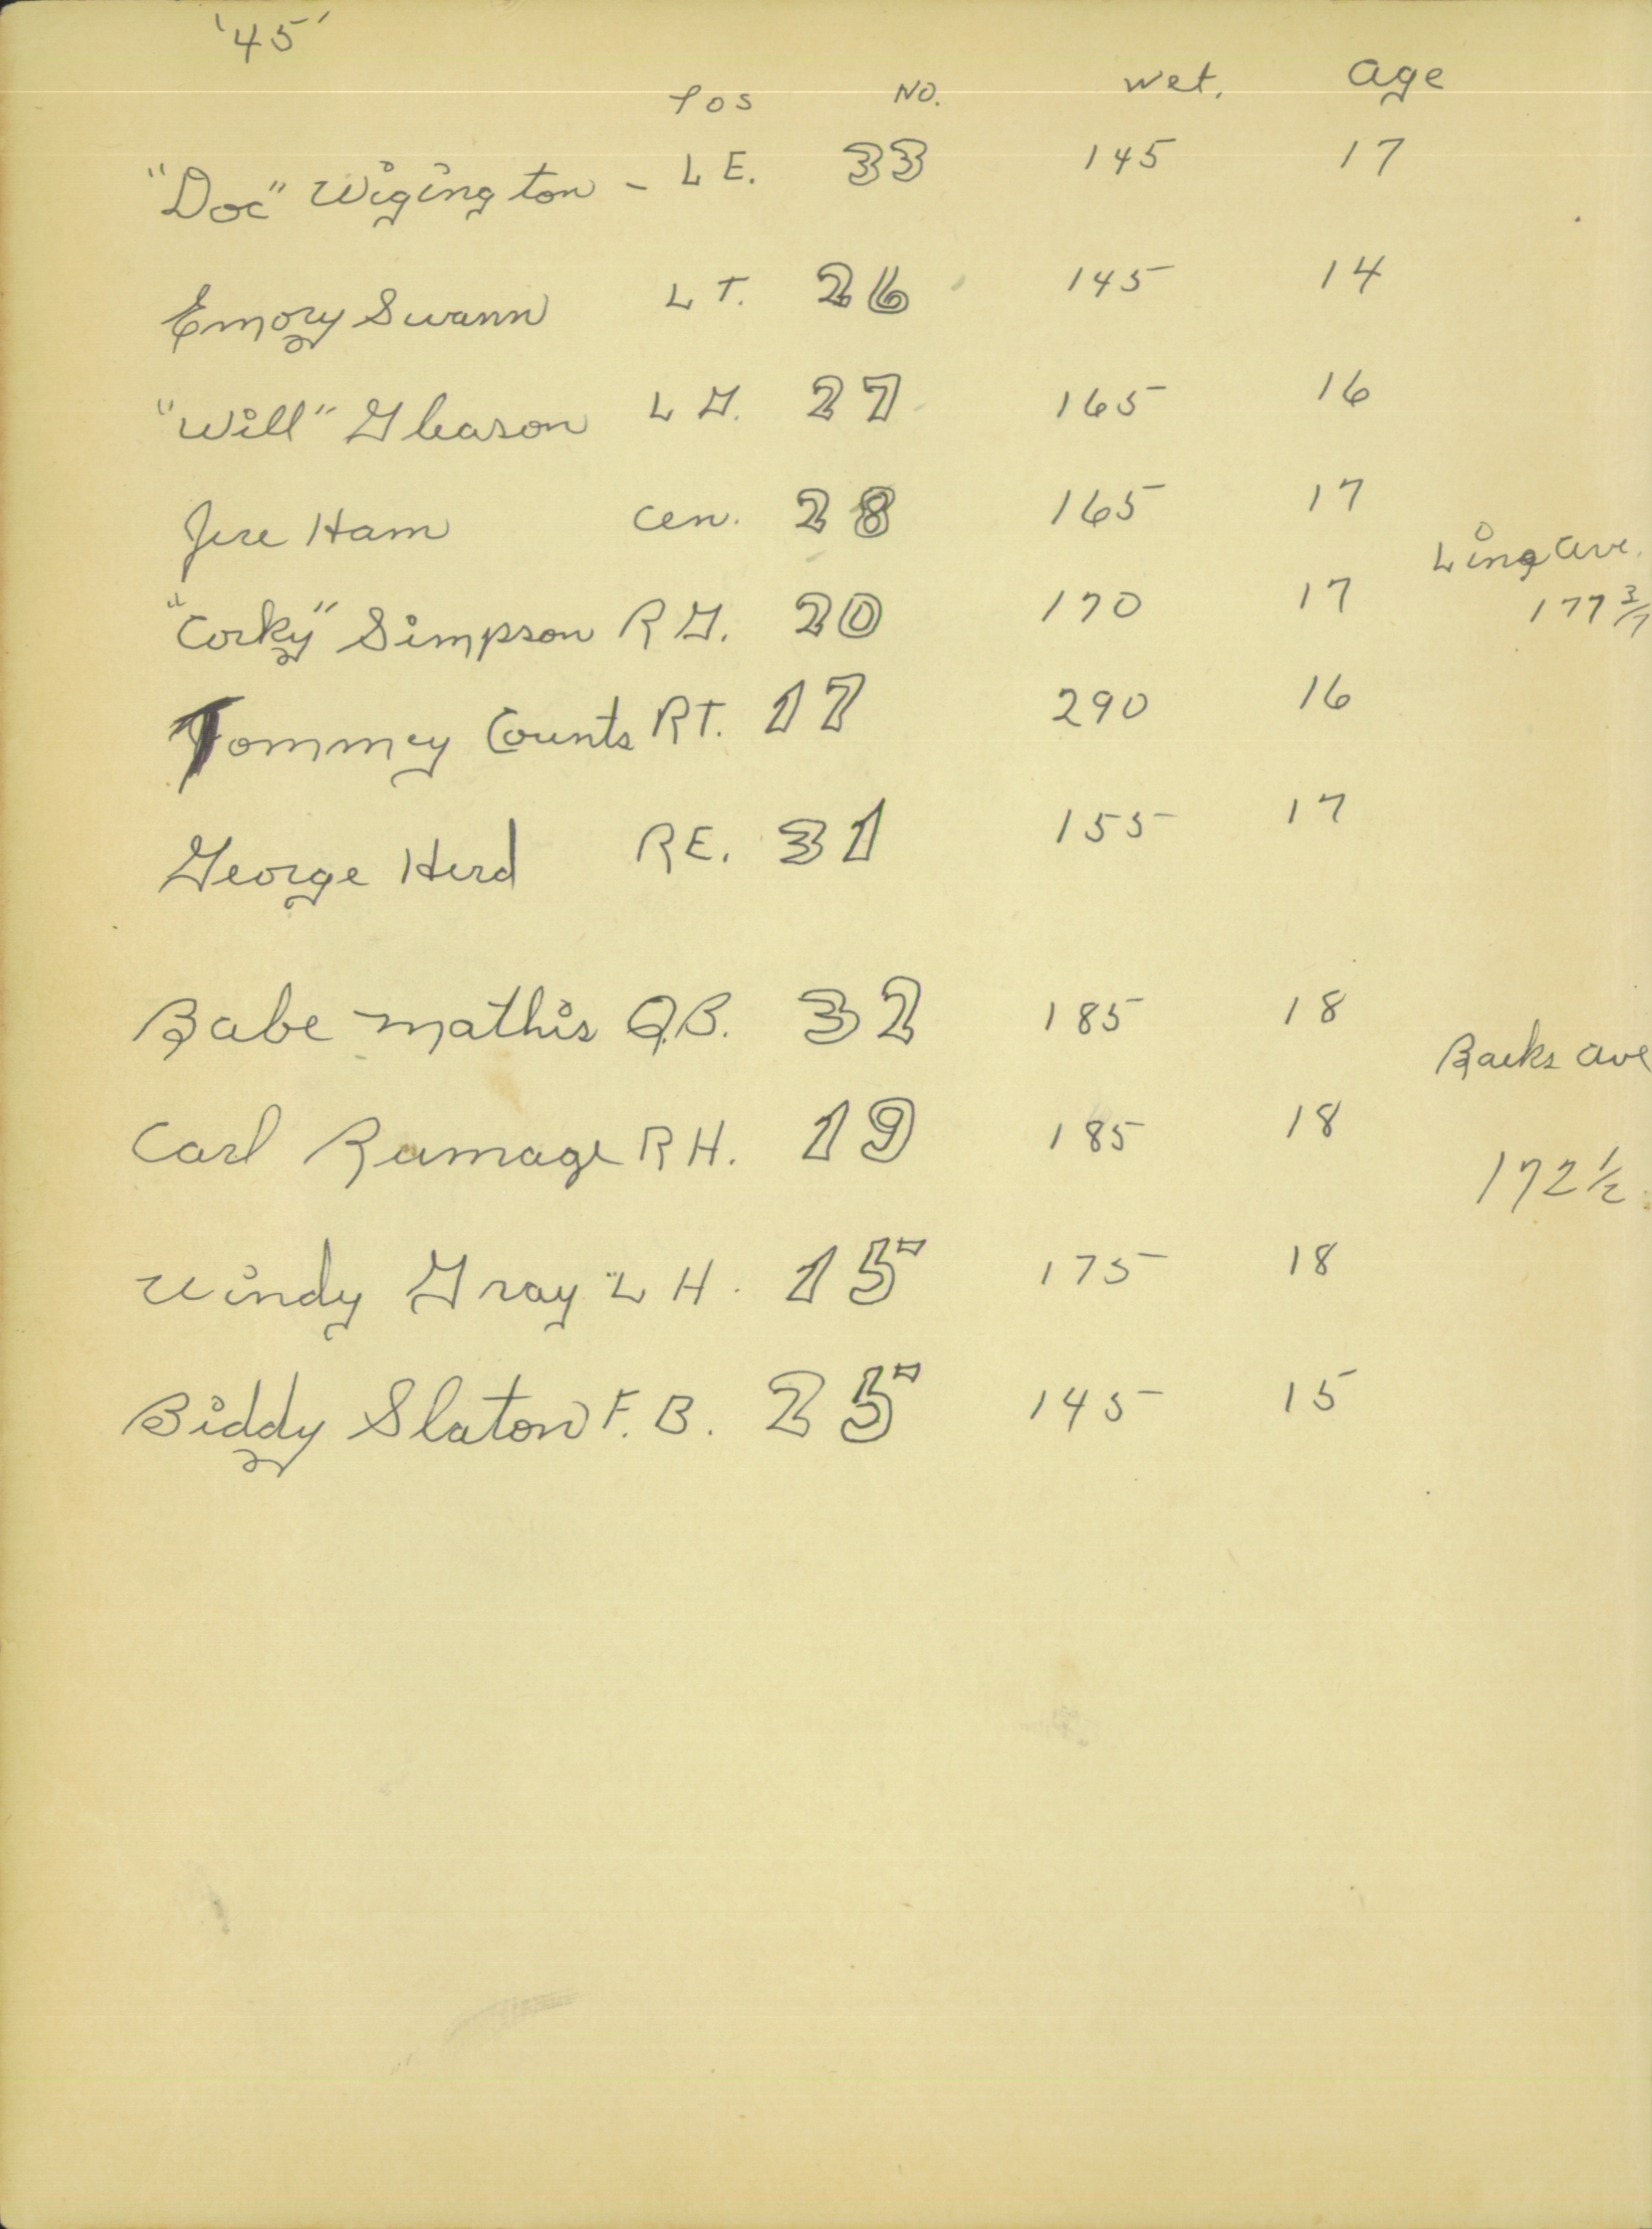 '45'
Pos No. Wet. Age
"Doc" Wigington - L E. 33 145 17
Emory Swann L T. 26 145 14
"Will" Gleason L G. 27 165 16
Jere Ham Cen. 28 165 17
Line Ave.
"Corky" Simpson R G. 20 170 17 177 3/7
Tommey Counts R T. 17 290 16
George Herd R E. 31 155 17
Babe Mathis Q.B. 32 185 18
Backs Ave
Carl Ramage R H. 19 185 18
172 1/2
Windy Gray L H. 15 175 18
Biddy Slaton F. B. 25 145 15